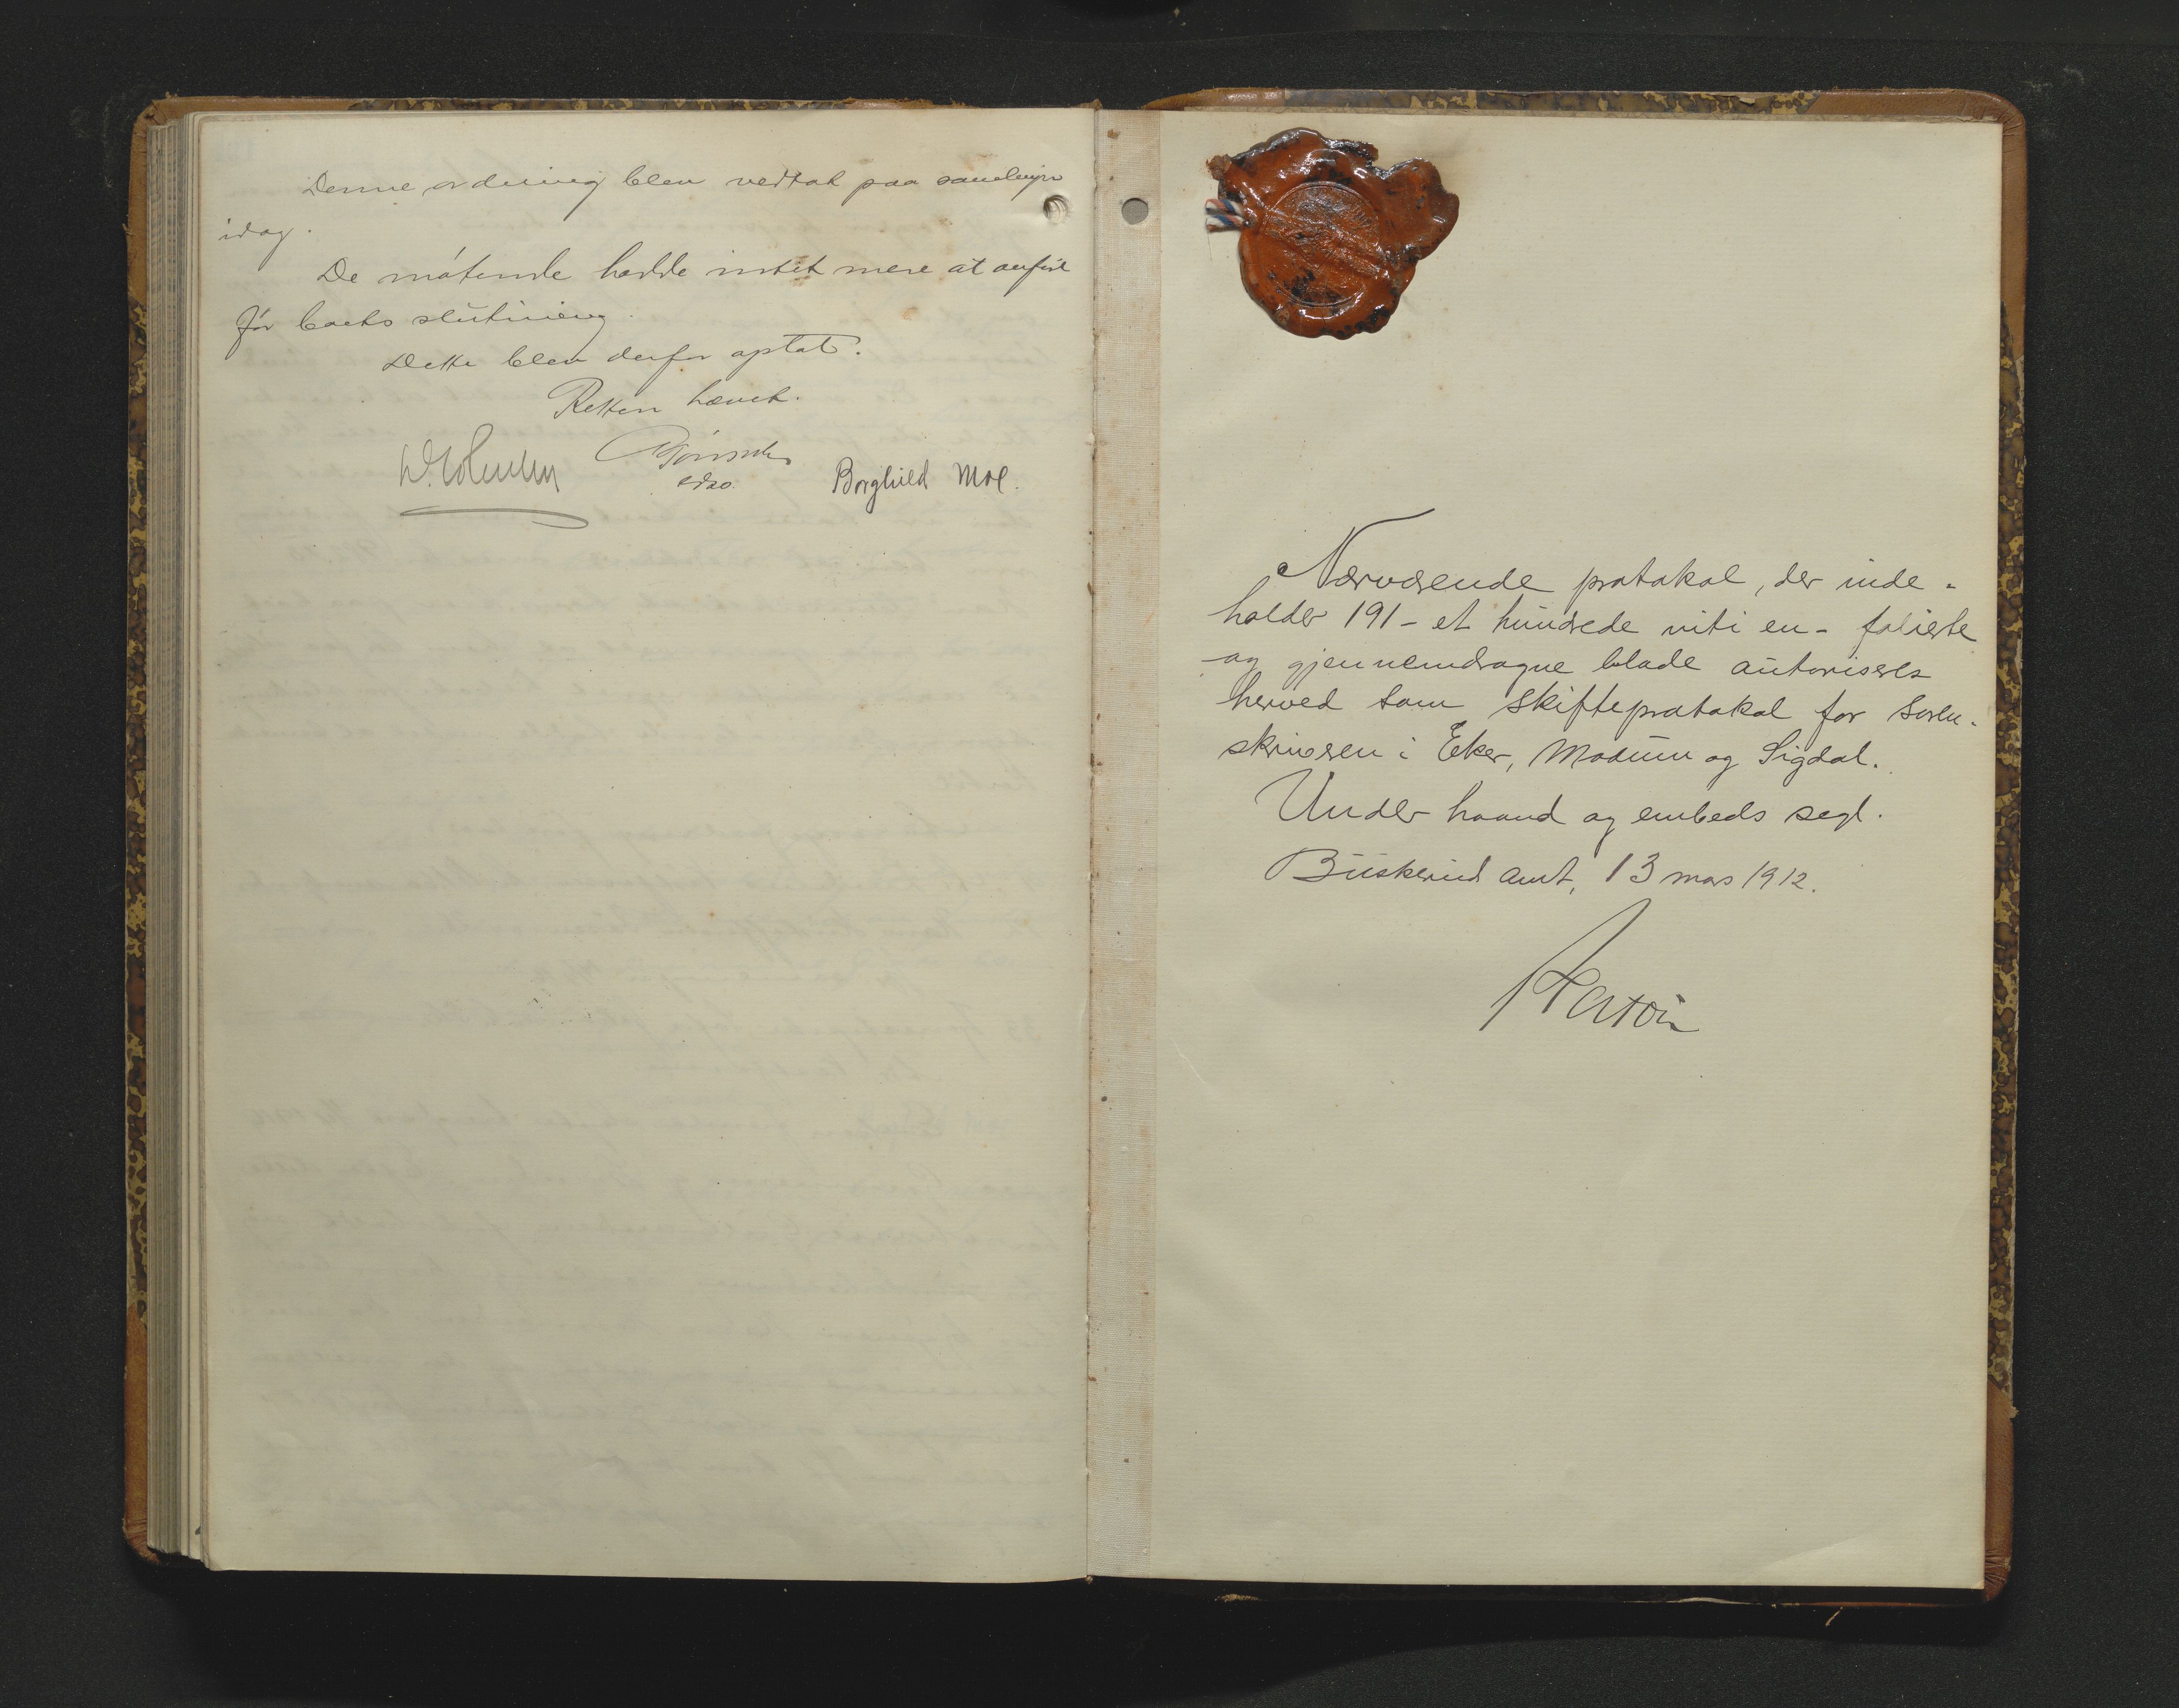 Denne ordning blev vedtat paa samlingen
idag.
De møtende hadde intet mere at anføre
før boets slutning.
Dette blev derfor optat.
Retten hævet.
Borghild Moe.
Nærværende protokol, der inde-
holder 191 - et hundrede niti en - folierte
og gjennemdragne blade autoriseres
herved som skifteprotokol for soren-
skriveren i Eker, Modum og Sigdal.
Under haand og embeds segl.
Buskerud amt, 13 mars 1912.